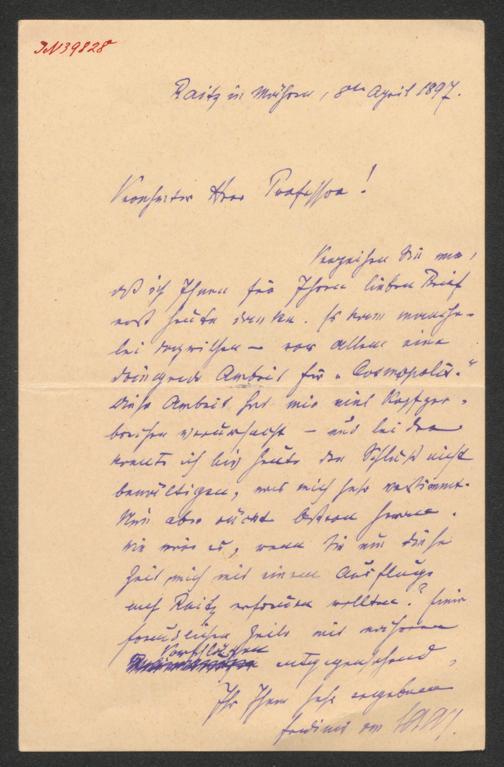 JN 39828
Raitz in Mähren, 8ten April 1897.
Verehrter Herr Professor!
Verzeihen Sie mir,
daß ich Ihnen für Ihren lieben Brief
erst heute danke. Es kam mancher-
lei dazwischen – vor allem eine
dringende Arbeit für „Cosmopolis."
Diese Arbeit hat mir viel Kopfzer-
brechen verursacht – und leider
konnte ich bis heute den Schluß nicht
bewältigen, was mich sehr verstimmt.
Nun aber rückt Ostern heran.
Wie wäre es, wenn Sie um diese
Zeit mich mit einem Ausfluge
auf Raitz erfreuen wollten?
freundlichen Zeile mit näheren
Vorschlägen
entgegensehend,
Ihr Ihnen sehr ergebener
Ferdinand von Saar.